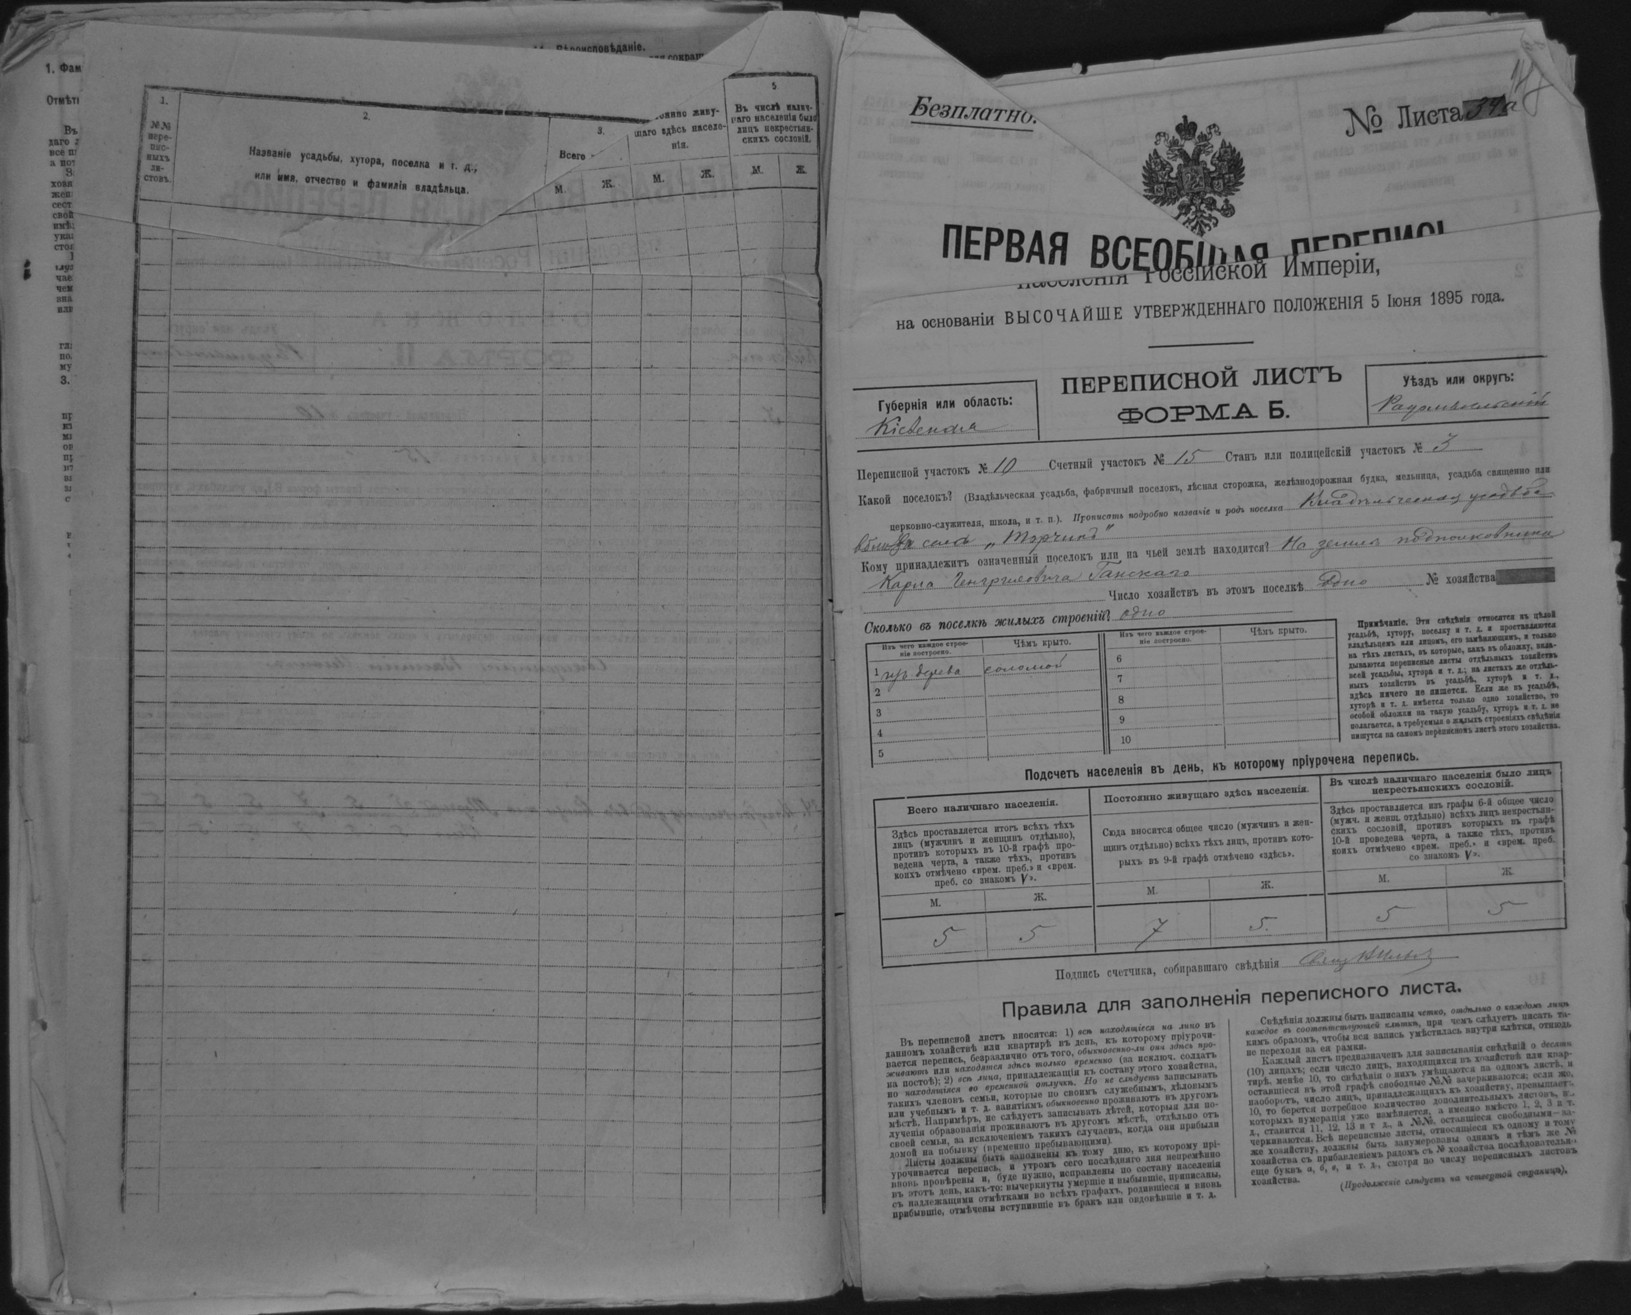 1. Фам
Отмѣт
3.
Вѣроисповѣданіе.
1.
№№ пере-
пис-
ныхъ
ли-
стовъ.
2.
Названіе усадьбы, хутора, поселка и т. д.,
или имя, отчество и фамилія владѣльца.
3.
Всего
М.
Ж.
оянно живу-
щаго здѣсь населе-
нія.
М.
Ж.
5
Въ числѣ налич-
наго населенія было
лицъ некрестьян-
скихъ сословій.
М.
Ж.
Безплатно.
№ Листа 34а
ПЕРВАЯ ВСЕОБЩАЯ ПЕРЕПИСЬ
населенія Россійской Имперіи,
на основаніи ВЫСОЧАЙШЕ УТВЕРЖДЕННАГО ПОЛОЖЕНІЯ 5 Іюня 1895 года.
ПЕРЕПИСНОЙ ЛИСТЪ
ФОРМА Б.
Губернія или область:
Кіевская
Уѣздъ или округъ:
Радомысльскій
Переписной участокъ № 10 Счетный участокъ № 15 Станъ или полицейскій участокъ № 3
Какой поселокъ? (Владѣльческая усадьба, фабричный поселокъ, лѣсная сторожка, желѣзнодорожная будка, мельница, усадьба священно или
церковно-служителя, школа, и т. п.). Прописать подробно названіе и родъ поселка Владѣльческая усадьба
вблизи села „Торчина"
Кому принадлежитъ означенный поселокъ или на чьей землѣ находится? На землѣ подполковника
Карла Генриховича Ганскаго
Число хозяйствъ въ этомъ поселкѣ Одно № хозяйства
Сколько въ поселкѣ жилыхъ строеній? одно
Изъ чего каждое строе-
ніе построено.
Чѣмъ крыто.
Изъ чего каждое строе-
ніе построено.
Чѣмъ крыто.
1 изъ дерева соломой
2
3
4
5
6
7
8
9
10
Примѣчаніе. Эти свѣдѣнія относятся къ цѣлой
усадьбѣ, хутору, поселку и т. д. и проставляются
владѣльцемъ или лицомъ, его замѣняющимъ, и только
на тѣхъ листахъ, въ которые, какъ въ обложку, вкла-
дываются переписные листы отдѣльныхъ хозяйствъ
всей усадьбы, хутора и т. д.; на листахъ же отдѣль-
ныхъ хозяйствъ въ усадьбѣ, хуторѣ и т. д.,
здѣсь ничего не пишется. Если же въ усадьбѣ,
хуторѣ и т. д. имѣется только одно хозяйство, то
особой обложки на такую усадьбу, хуторъ и т. д. не
полагается, а требуемыя о жилыхъ строеніяхъ свѣдѣнія
пишутся на самомъ переписномъ листѣ этого хозяйства.
Подсчетъ населенія въ день, къ которому пріурочена перепись.
Всего наличнаго населенія.
Здѣсь проставляется итогъ всѣхъ тѣхъ
лицъ (мужчинъ и женщинъ отдѣльно),
противъ которыхъ въ 10-й графѣ про-
ведена черта, а также тѣхъ, противъ
коихъ отмѣчено «врем. преб.» и «врем.
преб. со знакомъ V».
М.
Ж.
5
5
Постоянно живущаго здѣсь населенія.
Сюда вносится общее число (мужчинъ и жен-
щинъ отдѣльно) всѣхъ тѣхъ лицъ, противъ кото-
рыхъ въ 9-й графѣ отмѣчено «здѣсь».
М.
Ж.
7
5.
Въ числѣ наличнаго населенія было лицъ
некрестьянскихъ сословій.
Здѣсь проставляется изъ графы 6-й общее число
(мужч. и женщ. отдѣльно) всѣхъ лицъ некрестьян-
скихъ сословій, противъ которыхъ въ графѣ
10-й проведена черта, а также тѣхъ, противъ
коихъ отмѣчено «врем. преб.» и «врем. преб.
со знакомъ V».
М.
Ж.
5
5
Подпись счетчика, собиравшаго свѣдѣнія
Правила для заполненія переписного листа.
Въ переписной листъ вносятся: 1) всѣ находящіеся на лицо въ
данномъ хозяйствѣ или квартирѣ въ день, къ которому пріурочи-
вается перепись, безразлично отъ того, обыкновенно-ли они здѣсь про-
живаютъ или находятся здѣсь только временно (за исключ. солдатъ
на постоѣ); 2) всѣ лица, принадлежащія къ составу этого хозяйства,
но находящіяся во временной отлучкѣ. Но не слѣдуетъ записывать
такихъ членовъ семьи, которые по своимъ служебнымъ, дѣловымъ
или учебнымъ и т. д. занятіямъ обыкновенно проживаютъ въ другомъ
мѣстѣ. Напримѣръ, не слѣдуетъ записывать дѣтей, которыя для по-
лученія образованія проживаютъ въ другомъ мѣстѣ, отдѣльно отъ
своей семьи, за исключеніемъ такихъ случаевъ, когда они прибыли
домой на побывку (временно пребывающими).
Листы должны быть заполнены къ тому дню, къ которому прі-
урочивается перепись, и утромъ сего послѣдняго дня непремѣнно
вновь провѣрены и, буде нужно, исправлены по составу населенія
въ этотъ день, какъ-то: вычеркнуты умершіе и выбывшіе, приписаны,
съ надлежащими отмѣтками во всѣхъ графахъ, родившіеся и вновь
прибывшіе, отмѣчены вступившіе въ бракъ или овдовѣвшіе и т. д.
Свѣдѣнія должны быть написаны четко, отдѣльно о каждомъ лицѣ
каждое въ соотвѣтствующей клѣткѣ, при чемъ слѣдуетъ писать та-
кимъ образомъ, чтобы вся запись умѣстилась внутри клѣтки, отнюдь
не переходя за ея рамки.
Каждый листъ предназначенъ для записыванія свѣдѣній о десяти
(10) лицахъ; если число лицъ, находящихся въ хозяйствѣ или квар-
тирѣ, менѣе 10, то свѣдѣнія о нихъ умѣщаются на одномъ листѣ, и
оставшіеся въ этой графѣ свободные №№ зачеркиваются; если же,
наоборотъ, число лицъ, принадлежащихъ къ хозяйству, превышаетъ
10, то берется потребное количество дополнительныхъ листовъ, въ
которыхъ нумерація уже измѣняется, а именно вмѣсто 1, 2, 3 и т.
д., ставится 11, 12, 13 и т. д., а №№, оставшіеся свободными — за-
черкиваются. Всѣ переписные листы, относящіеся къ одному и тому
же хозяйству, должны быть занумерованы однимъ и тѣмъ же №
хозяйства съ прибавленіемъ рядомъ съ № хозяйства послѣдовательно
еще буквъ а, б, в, и т. д., смотря по числу переписныхъ листовъ
хозяйства.
(Продолженіе слѣдуетъ на четвертой страницѣ).